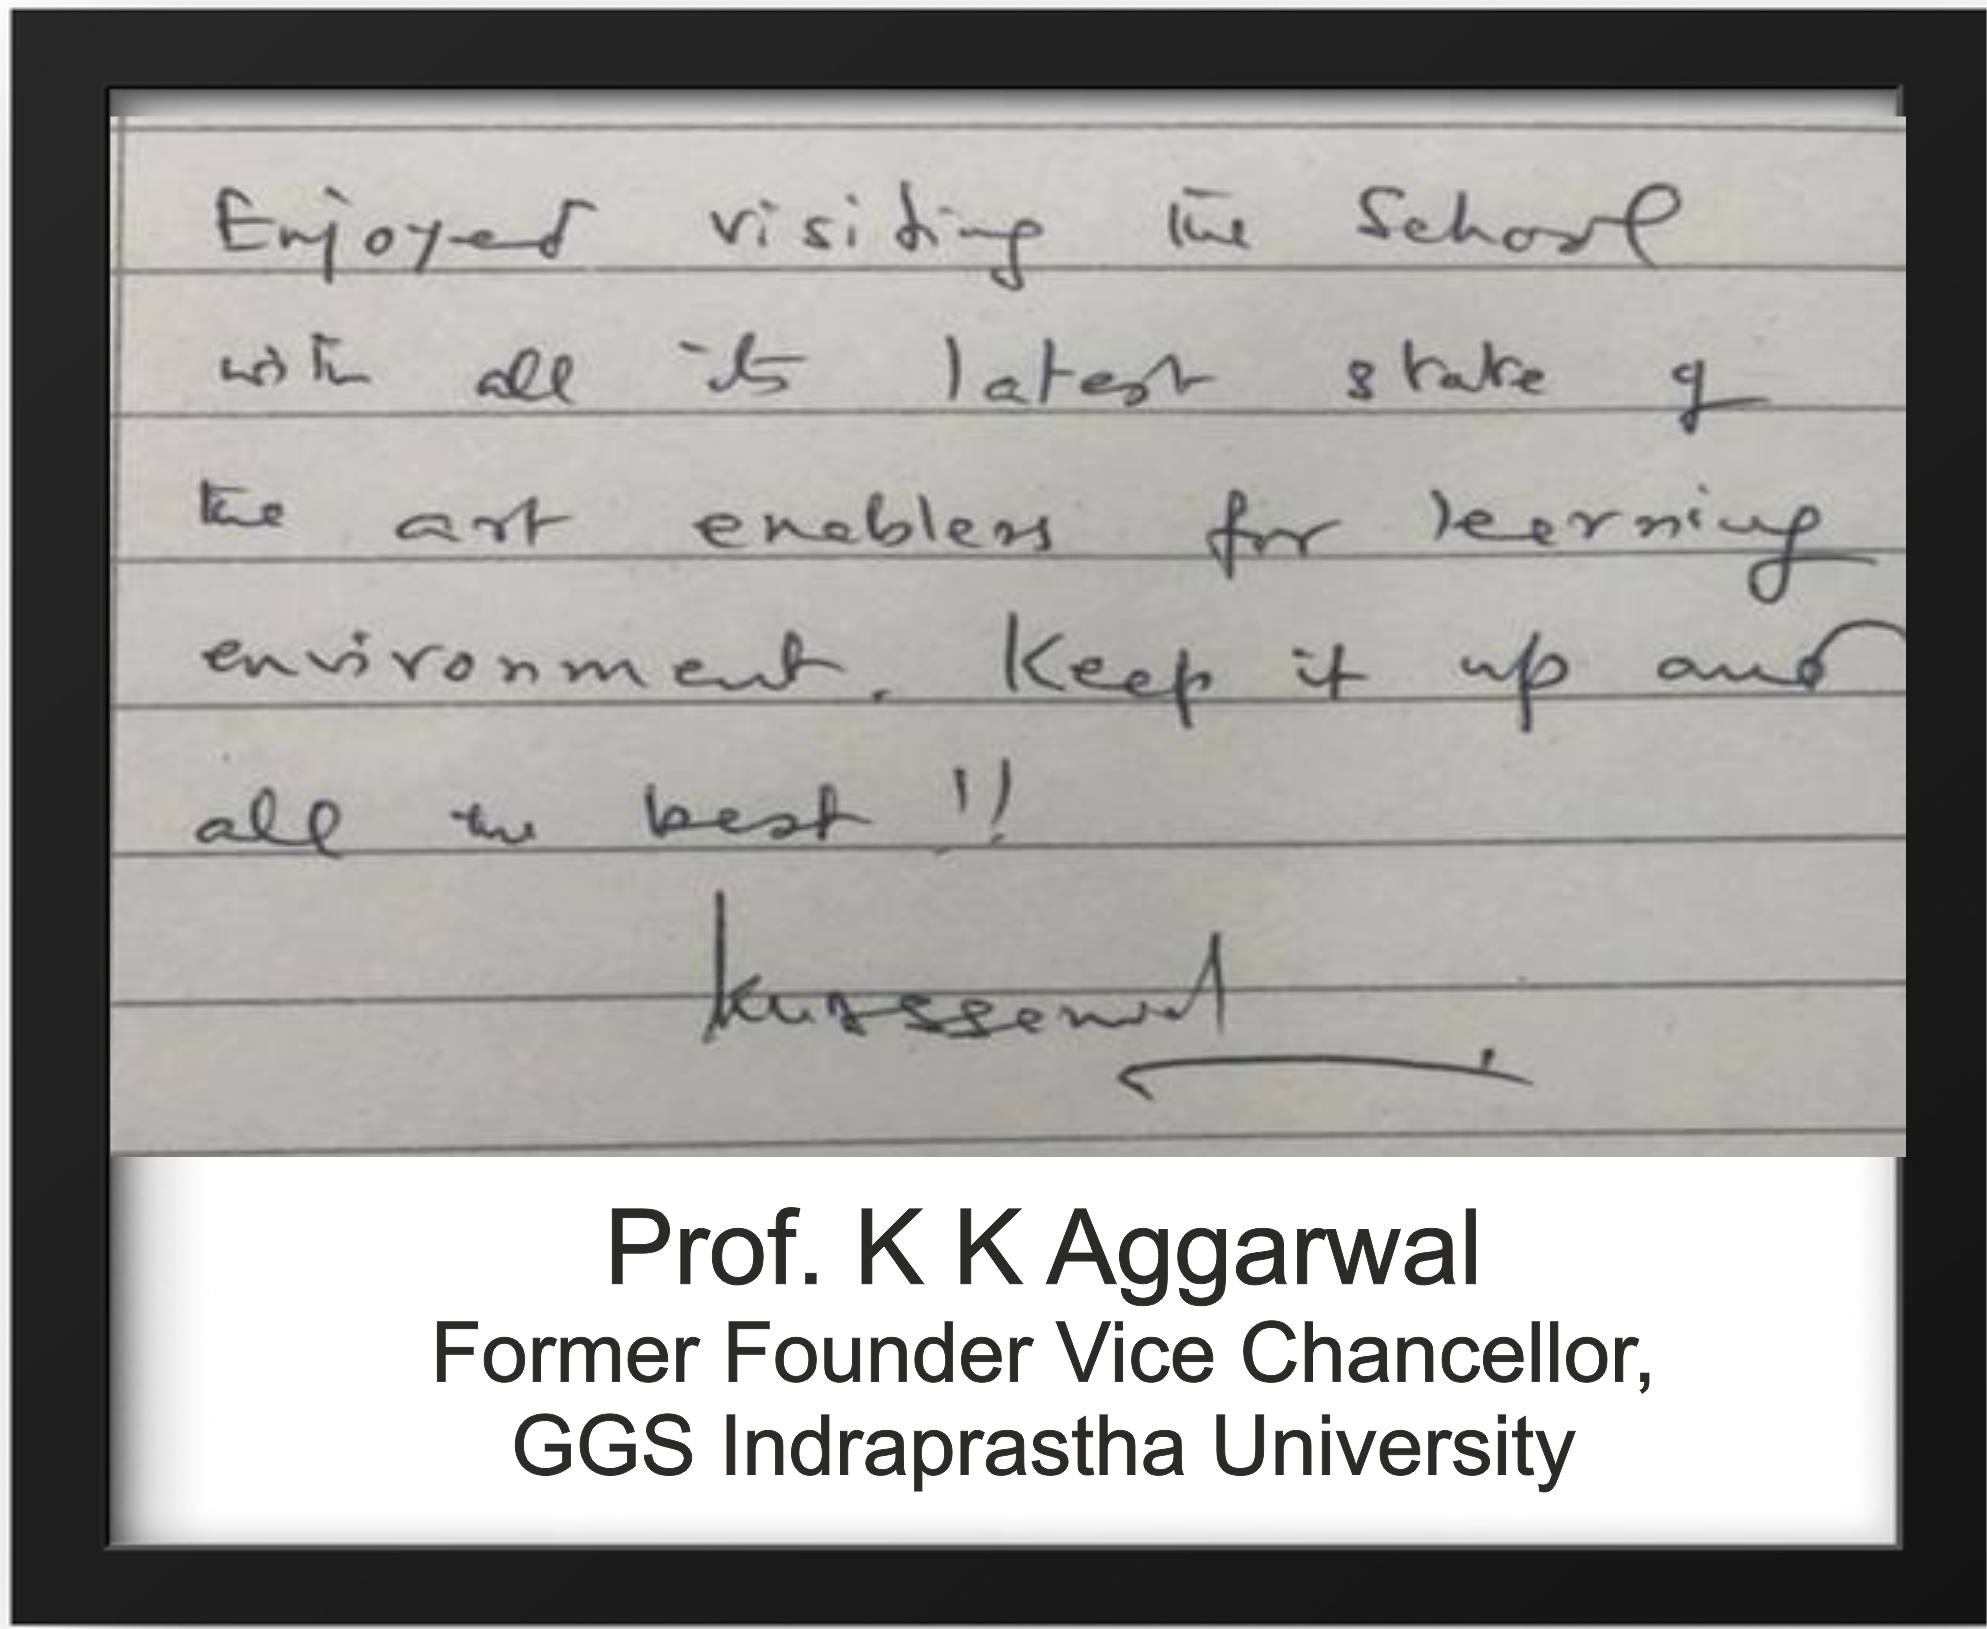 Enjoyed visiting the School
with all its latest state of
the art enablers for learning
environment. Keep it up and
all the best !!
Prof. K K Aggarwal
Former Founder Vice Chancellor,
GGS Indraprastha University